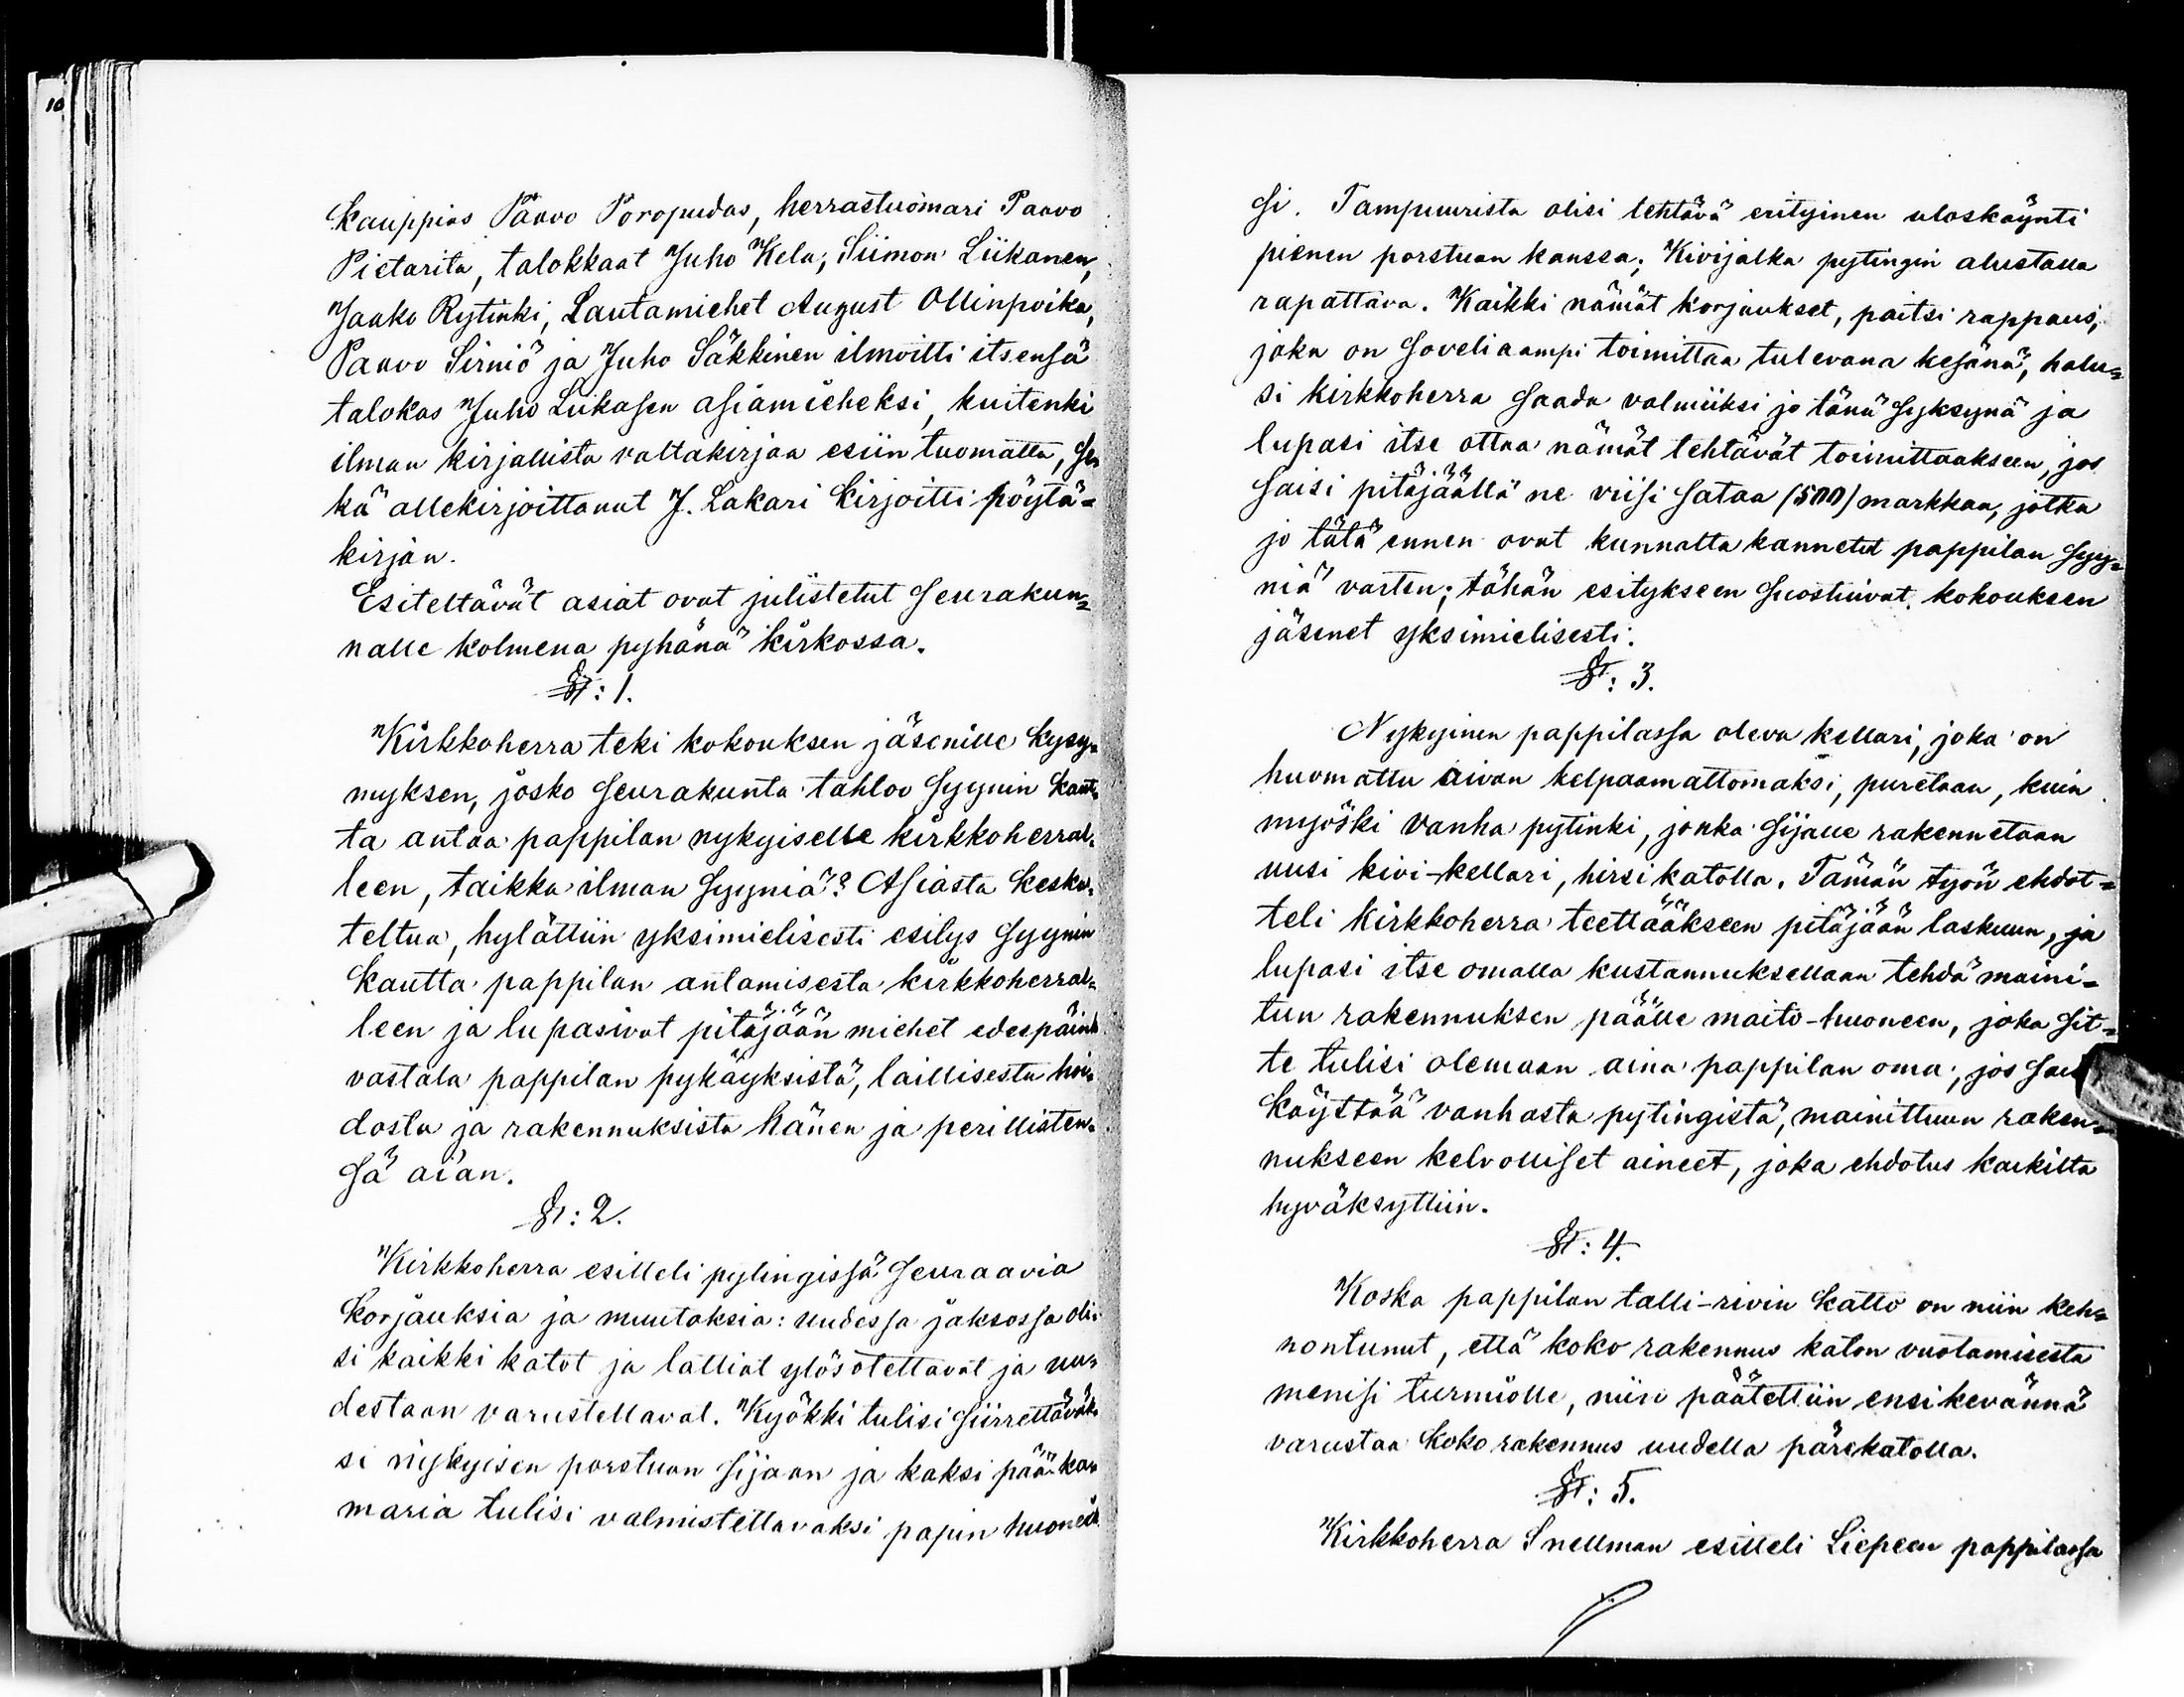 10
kauppias Paavo Poropudas, herrastuomari Paavo
Pietarila, talokkaat Juho Kela, Siimon Liikanen,
Jaako Rytinki, Lautamiehet August Ollinpoika,
Paavo Sirniö ja Juho Säkkinen ilmoitti itsensä
talokas Juho Liikasen asiamieheksi, kuitenki
ilman kirjallista valtakirjaa esiin tuomatta, se-
kä allekirjoittanut J. Lakari kirjoitti pöytä-
kirjan.
Esiteltävät asiat ovat julistetut Seurakun-
nalle kolmena pyhänä kirkossa.
§: 1.
Kirkkoherra teki kokouksen jäsenille kysy-
myksen, josko Seurakunta tahtoo syynin kaut-
ta antaa pappilan nykyiselle kirkkoherral-
leen, taikka ilman syyniä? Asiasta kesku-
teltua, hylättiin yksimielisesti esitys syynin
kautta pappilan antamisesta kirkkoherral-
leen ja lupasivat pitäjään miehet edespäin
vastata pappilan pykäyksistä, laillisesta hoi-
dosta ja rakennuksista hänen ja perillisten-
sä aian.
§: 2.
Kirkkoherra esitteli pytingissä seuraavia
korjauksia ja muutoksia: uudessa jaksossa oli-
si kaikki katot ja lattiat ylösotettavat ja uu-
destaan varustettavat. Kyökki tulisi siirrettäväk-
si nykyisen porstuan sijaan ja kaksi pääkam-
maria tulisi valmistettavaksi papin huoneik-
si. Tampuurista olisi tehtävä erityinen uloskäynti
pienen porstuan kanssa; Kivijalka pytingin alustalla
rapattava. Kaikki nämät korjaukset, paitsi rappaus,
joka on soveliaampi toimittaa tulevana kesänä, halu-
si kirkkoherra saada valmiiksi jo tänä syksynä ja
lupasi itse ottaa nämät tehtävät toimittaakseen, jos
saisi pitäjäältä ne viisi sataa (500) markkaa, jotka
jo tätä ennen ovat kunnalta kannetut pappilan syy-
niä varten; tähän esitykseen suostuivat kokouksen
jäsenet yksimielisesti.
§: 3.
Nykyinen pappilassa oleva kellari, joka on
huomattu aivan kelpaamattomaksi, puretaan, kuin
myöski vanha pytinki, jonka sijalle rakennetaan
uusi kivi-kellari, hirsi katolla. Tämän työn ehdot-
teli Kirkkoherra teettääkseen pitäjään laskuun, ja
lupasi itse omalla kustannuksellaan tehdä maini-
tun rakennuksen päälle maito-huoneen, joka sit-
te tulisi olemaan aina pappilan oma, jos saa
käyttää vanhasta pytingistä, mainittuun raken-
nukseen kelvolliset aineet, joka ehdotus kaikilta
hyväksyttiin.
§: 4.
Koska pappilan talli-rivin katto on niin keh-
nontunut, että koko rakennus katon vuotamisesta
menisi turmiolle, niin päätettiin ensikevännä
varustaa koko rakennus uudella pärekatolla.
§: 5.
Kirkkoherra Snellman esitteli Liepeen pappilassa